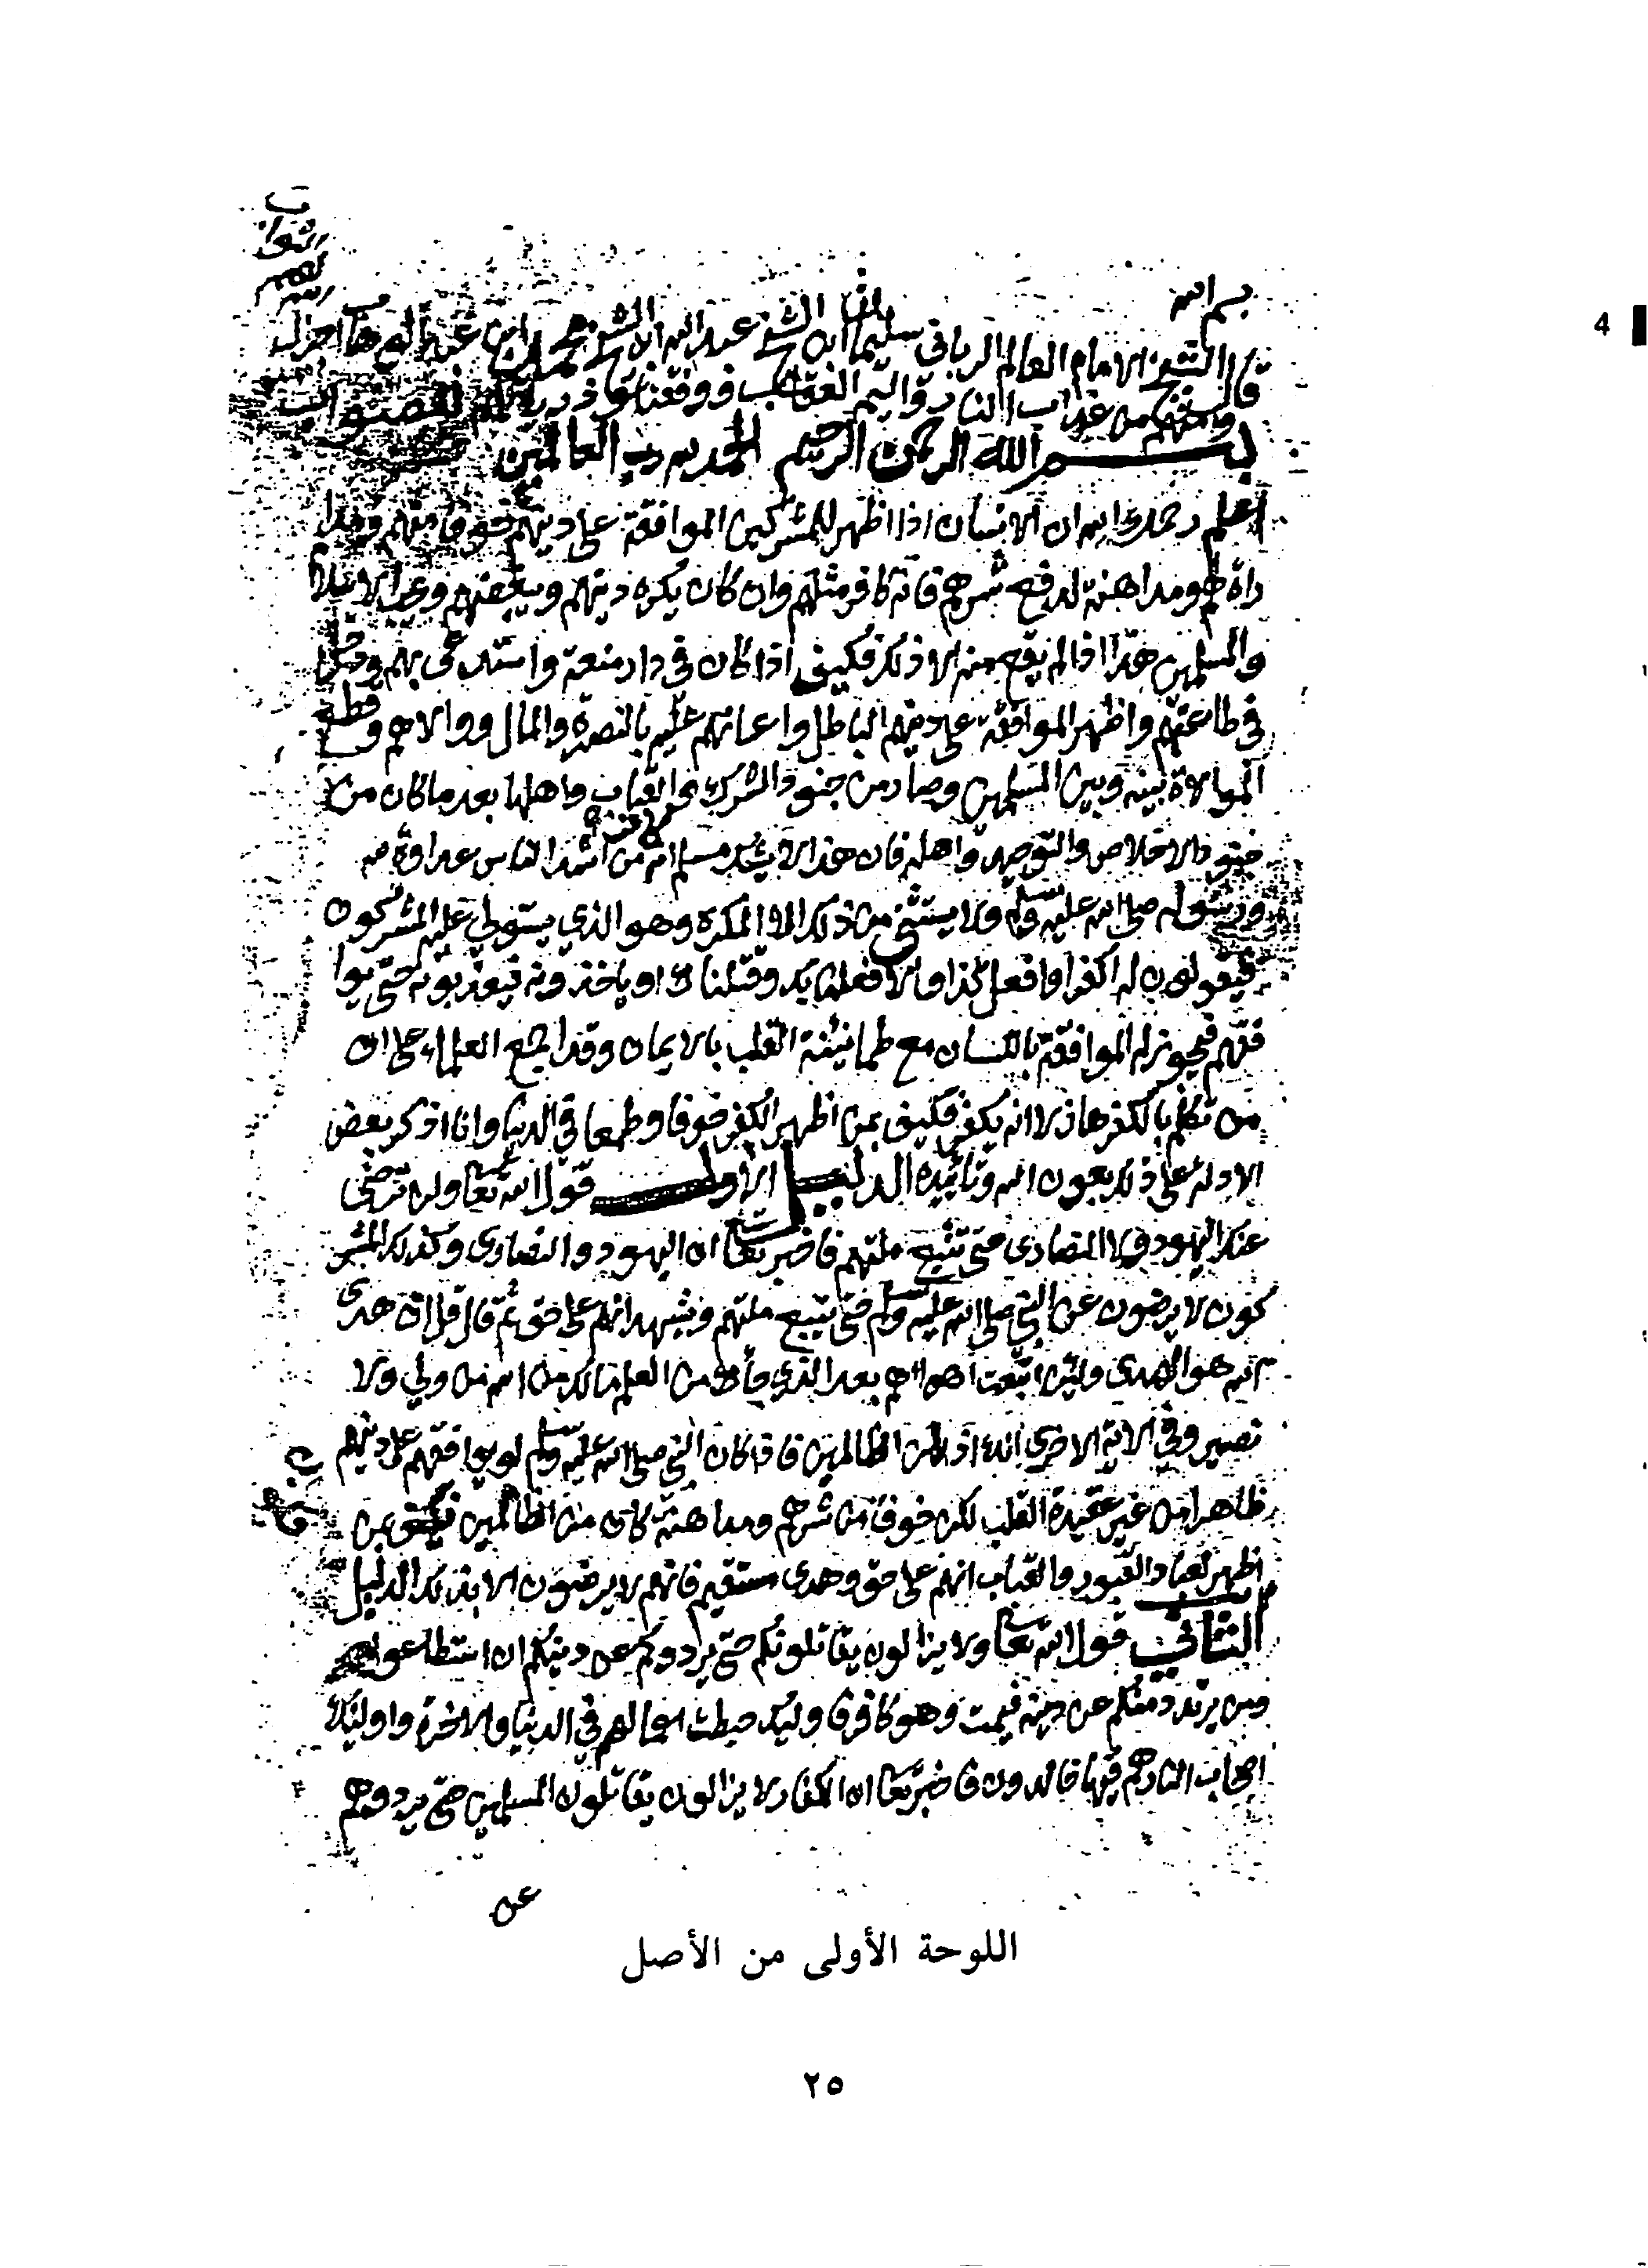 بسم الله
قال الشيخ الامام العالم الرباني سليمان ابن الشيخ عبد الله ابن الشيخ محمد ابن عبد الوهاب اجزل
من عذاب النار واليم العقاب ووفقنا
بسم الله الرحمن الرحيم الحمد لله رب العالمين
اعلم رحمك الله ان الانسان اذا اظهر للمشركين الموافقة على دينهم خوفا منهم ومدا
راة لهم ومداهنة لدفع شرهم فانه كافر مثلهم وان كان يكره دينهم ويبغضهم ويحب الاسلام
والمسلمين هذا اذا لم يقع منه الا ذلك فكيف اذا كان في دار منعة واستدعى بهم ودخل
في طاعتهم واظهر الموافقة على دينهم الباطل واعانهم عليه بالنصرة والمال ووالاهم وقطع
الموالاة بينه وبين المسلمين وصار من جنود الشرك والقباب واهلها بعد ما كان من
جنود الاخلاص والتوحيد واهله فان هذا لا يشك مسلم انه كافر من اشد الناس عداوة لله
ورسوله صلى الله عليه وسلم ولا يستثنى من ذلك الا المكره وهو الذي يستولي عليه المشركون
فيقولون له اكفر او افعل كذا والا فعلنا بك وقتلناك او ياخذونه فيعذبونه حتى يوا
فقهم فيجوز له الموافقة باللسان مع طمانينة القلب بالايمان وقد اجمع العلماء على ان
من تكلم بالكفر هازلا انه يكفر فكيف بمن اظهر الكفر خوفا وطمعا في الدنيا وانا اذكر بعض
الادلة على ذلك بعون الله وتأييده الدليل الاول قول الله تعالى ولن ترضى
عنك اليهود ولا النصارى حتى تتبع ملتهم فاخبر تعالى ان اليهود والنصارى وكذلك المشر
كون لا يرضون عن النبي صلى الله عليه وسلم حتى يتبع ملتهم ويشهد انهم على حق ثم قال قل ان هدى
الله هو الهدى ولئن اتبعت اهواءهم بعد الذي جاءك من العلم ما لك من الله من ولي ولا
نصير وفي الاية الاخرى انك اذا لمن الظالمين فاذا كان النبي صلى الله عليه وسلم لو يوافقهم على دينهم
ظاهرا من غير عقيدة القلب لكن خوفا من شرهم ومداهنة كان من الظالمين فكيف بمن
اظهر لعباد القبور والقباب انهم على حق وهدى مستقيم فانهم لا يرضون الا بذلك الدليل
الثاني قول الله تعالى ولا يزالون يقاتلونكم حتى يردوكم عن دينكم ان استطاعوا
ومن يرتدد منكم عن دينه فيمت وهو كافر فاوليك حبطت اعمالهم في الدنيا والاخرة واوليك
اصحاب النار هم فيها خالدون فاخبر تعالى ان الكفار لا يزالون يقاتلون المسلمين حتى يردوهم
عن
اللوحة الأولى من الأصل
٢٥
4